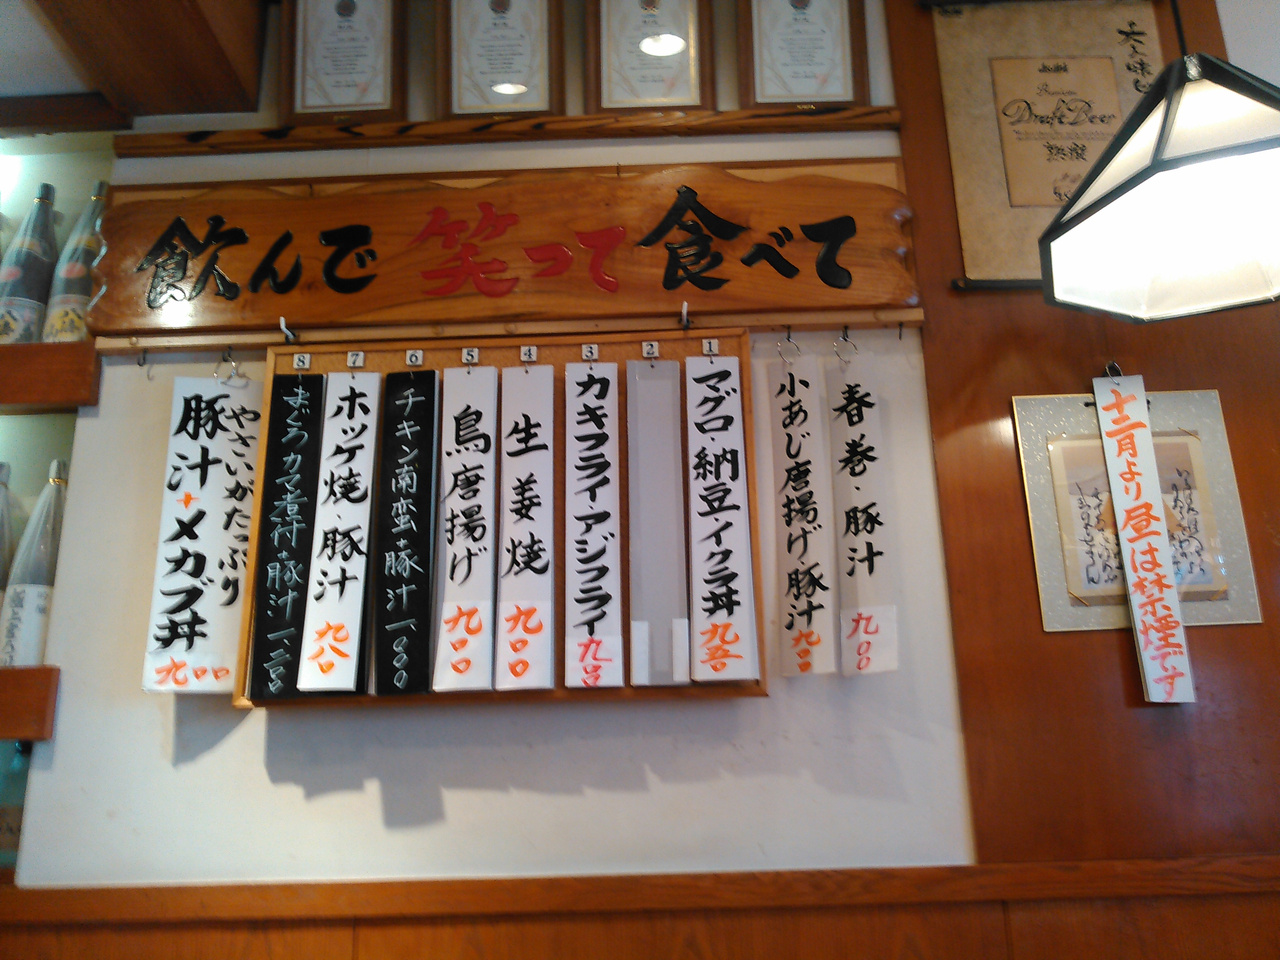 飲んで笑って食べて
春巻・豚汁 九00
小あじ唐揚げ・豚汁 九00
1
マグロ・納豆イクラ丼 九五0
2
3
カキフライ・アジフライ 九00
4
生姜焼 九00
5
鳥唐揚げ 九00
6
チキン南蛮・豚汁 一、000
7
ホッケ焼・豚汁 九八0
8
まぐろカマ煮汁・豚汁 一、二00
やさいがたっぷり
豚汁+メカブ丼 九00
十二月より昼は禁煙です
Asahi
Premium
Draft Beer
熟撰